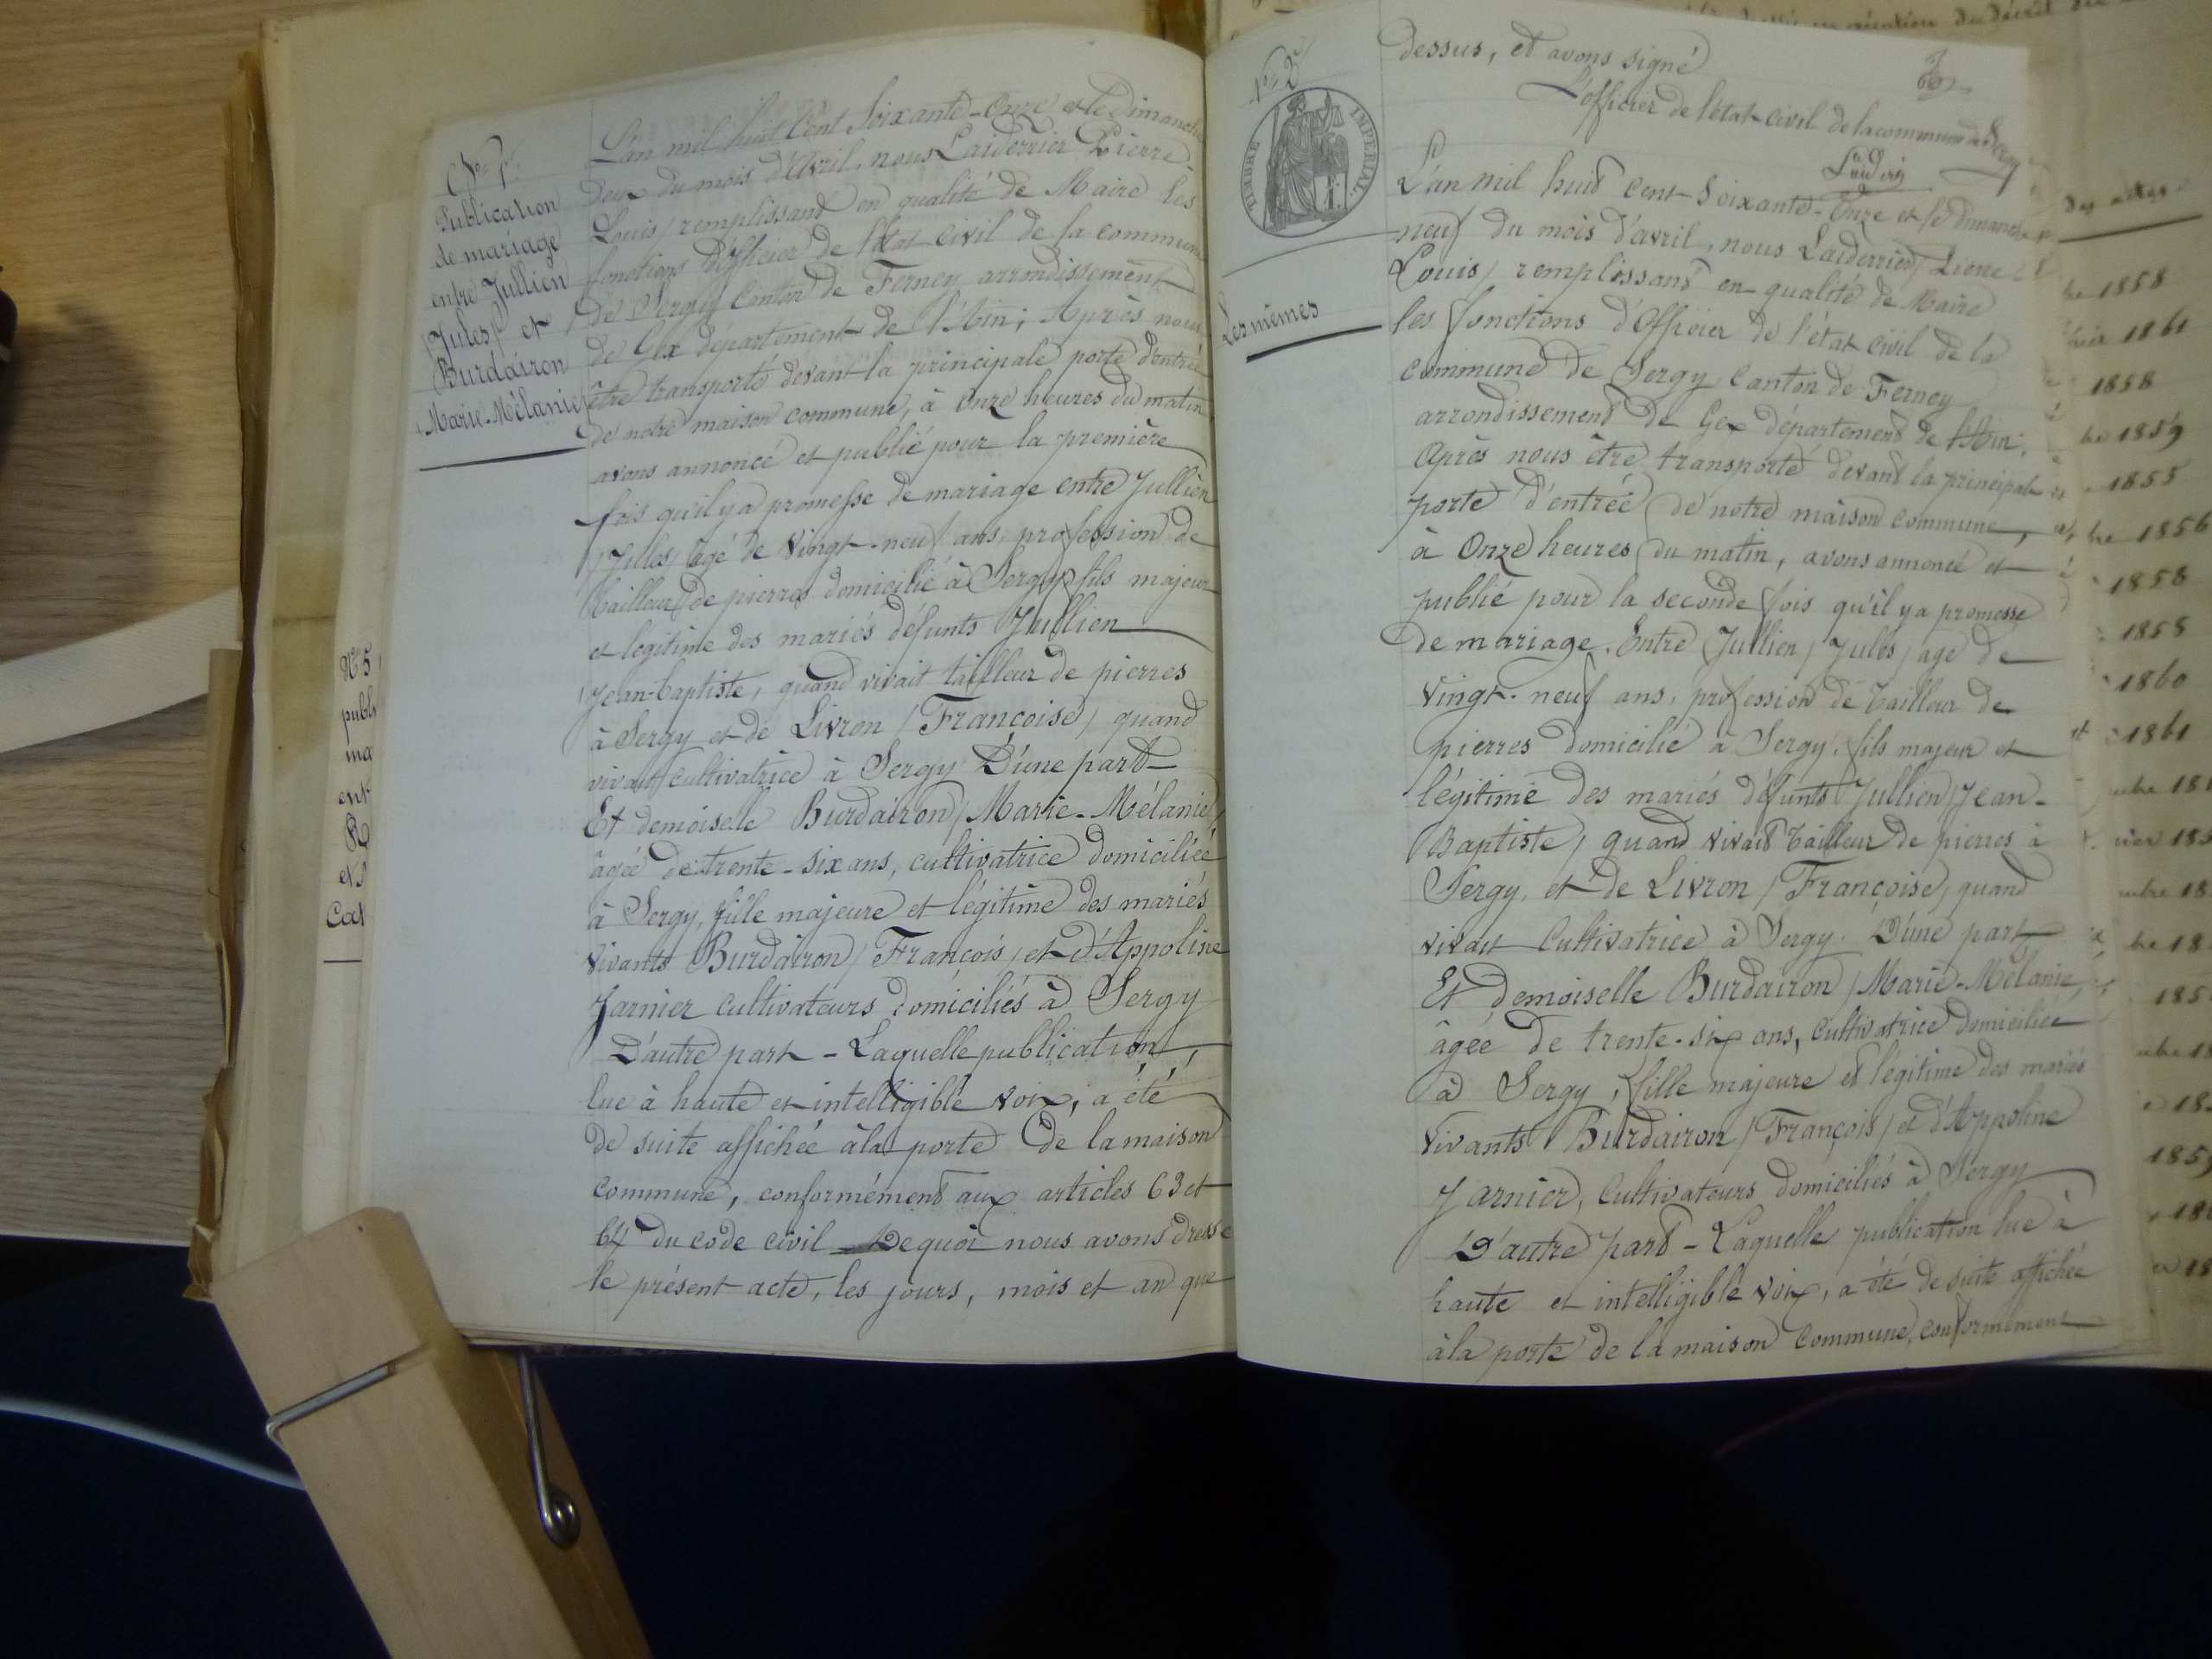 Publication
de mariage
entre Jullien
/Jules/ et
Burdairon
/Marie-Mélanie/
L'an mil huit Cent Soixante-Onze et le Dimanche
Deux du mois d'Avril, nous Laiderrier Pierre-
Louis/ remplissant en qualité de Maire les
fonctions d'Officier de l'état civil de la commune
de Sergy Canton de Ferney arrondissement
de Gex département de l'Ain; Après nous
être transporté devant la principale porte d'entrée
de notre maison commune, à Onze heures du matin
avons annoncé et publié pour la première
fois qu'il y a promesse de mariage entre Jullien
/Jules/ âgé de Vingt-neuf ans, profession de
tailleur de pierres domicilié à Sergy fils majeur
et légitime des mariés défunts Jullien
/Jean-baptiste, quand vivait tailleur de pierres
à Sergy et de Livron /Françoise/ quand
vivait cultivatrice à Sergy D'une part
Et demoiselle Burdairon /Marie-Mélanie/
âgée de trente-six ans, cultivatrice domiciliée
à Sergy, fille majeure et légitime des mariés
vivants Burdairon /François/ et d'Appoline
Jarnier cultivateurs domiciliés à Sergy
D'autre part - Laquelle publication,
lue à haute et intelligible voix, a été
de suite affichée à la porte de la maison
commune, conformément aux articles 63 et
64 du code civil Dequoi nous avons dressé
le présent acte, les jours, mois et an que
N° 5
publ
ma
ent
et
Cat
N° 2
TIMBRE IMPERIAL
Les mêmes
dessus, et avons signé
L'officier de l'état-civil de la commune de Sergy
L'an mil huit cent Soixante-Onze et le dimanche
neuf du mois d'avril, nous Laiderrier/ Pierre-
Louis/ remplissant en qualité de Maire
les fonctions d'Officier de l'état civil de la
commune de Sergy Canton de Ferney
arrondissement de Gex département de l'Ain;
Après nous être transporté devant la principale
porte d'entrée de notre maison commune,
à Onze heures du matin, avons annoncé et
publié pour la seconde fois qu'il y a promesse
de mariage. Entre Jullien/ Jules/ agé de
Vingt-neuf ans, profession de tailleur de
pierres domicilié à Sergy, fils majeur et
légitime des mariés défunts Jullien/Jean-
Baptiste/ quand vivait tailleur de pierres à
Sergy, et de Livron /Françoise/ quand
vivait Cultivatrice à Sergy. D'une part
Et demoiselle Burdairon /Marie-Mélanie,
âgée de trente-six ans, Cultivatrice domiciliée
à Sergy, fille majeure et légitime des mariés
vivants Burdairon /François/ et d'Appoline
Jarnier, Cultivateurs domiciliés à Sergy
D'autre part - Laquelle publication lue à
haute et intelligible voix, a été de suite affichée
à la porte de la maison Commune, conformément
des actes
1858
1861
1858
1859
1855
1856
1858
1858
1860
1861